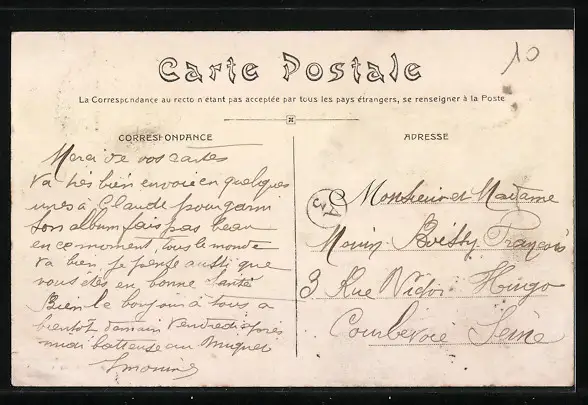 10
Carte Postale
La Correspondance au recto n'étant pas acceptée par tous les pays étrangers, se renseigner à la Poste
CORRESPONDANCE
Merci de vos cartes
va très bien envoie en quelques
unes à Claude pour garnir
son album fais pas beau
en ce moment, tous le monde
va bien, je pense aussi que
vous êtes en bonne santé
Bien le bonjour à tous a
bientôt demain Vendredi après
midi batteuse au
ADRESSE
Monsieur et Madame
Boissy François
3 Rue Victor Hugo
Courbevoie Seine